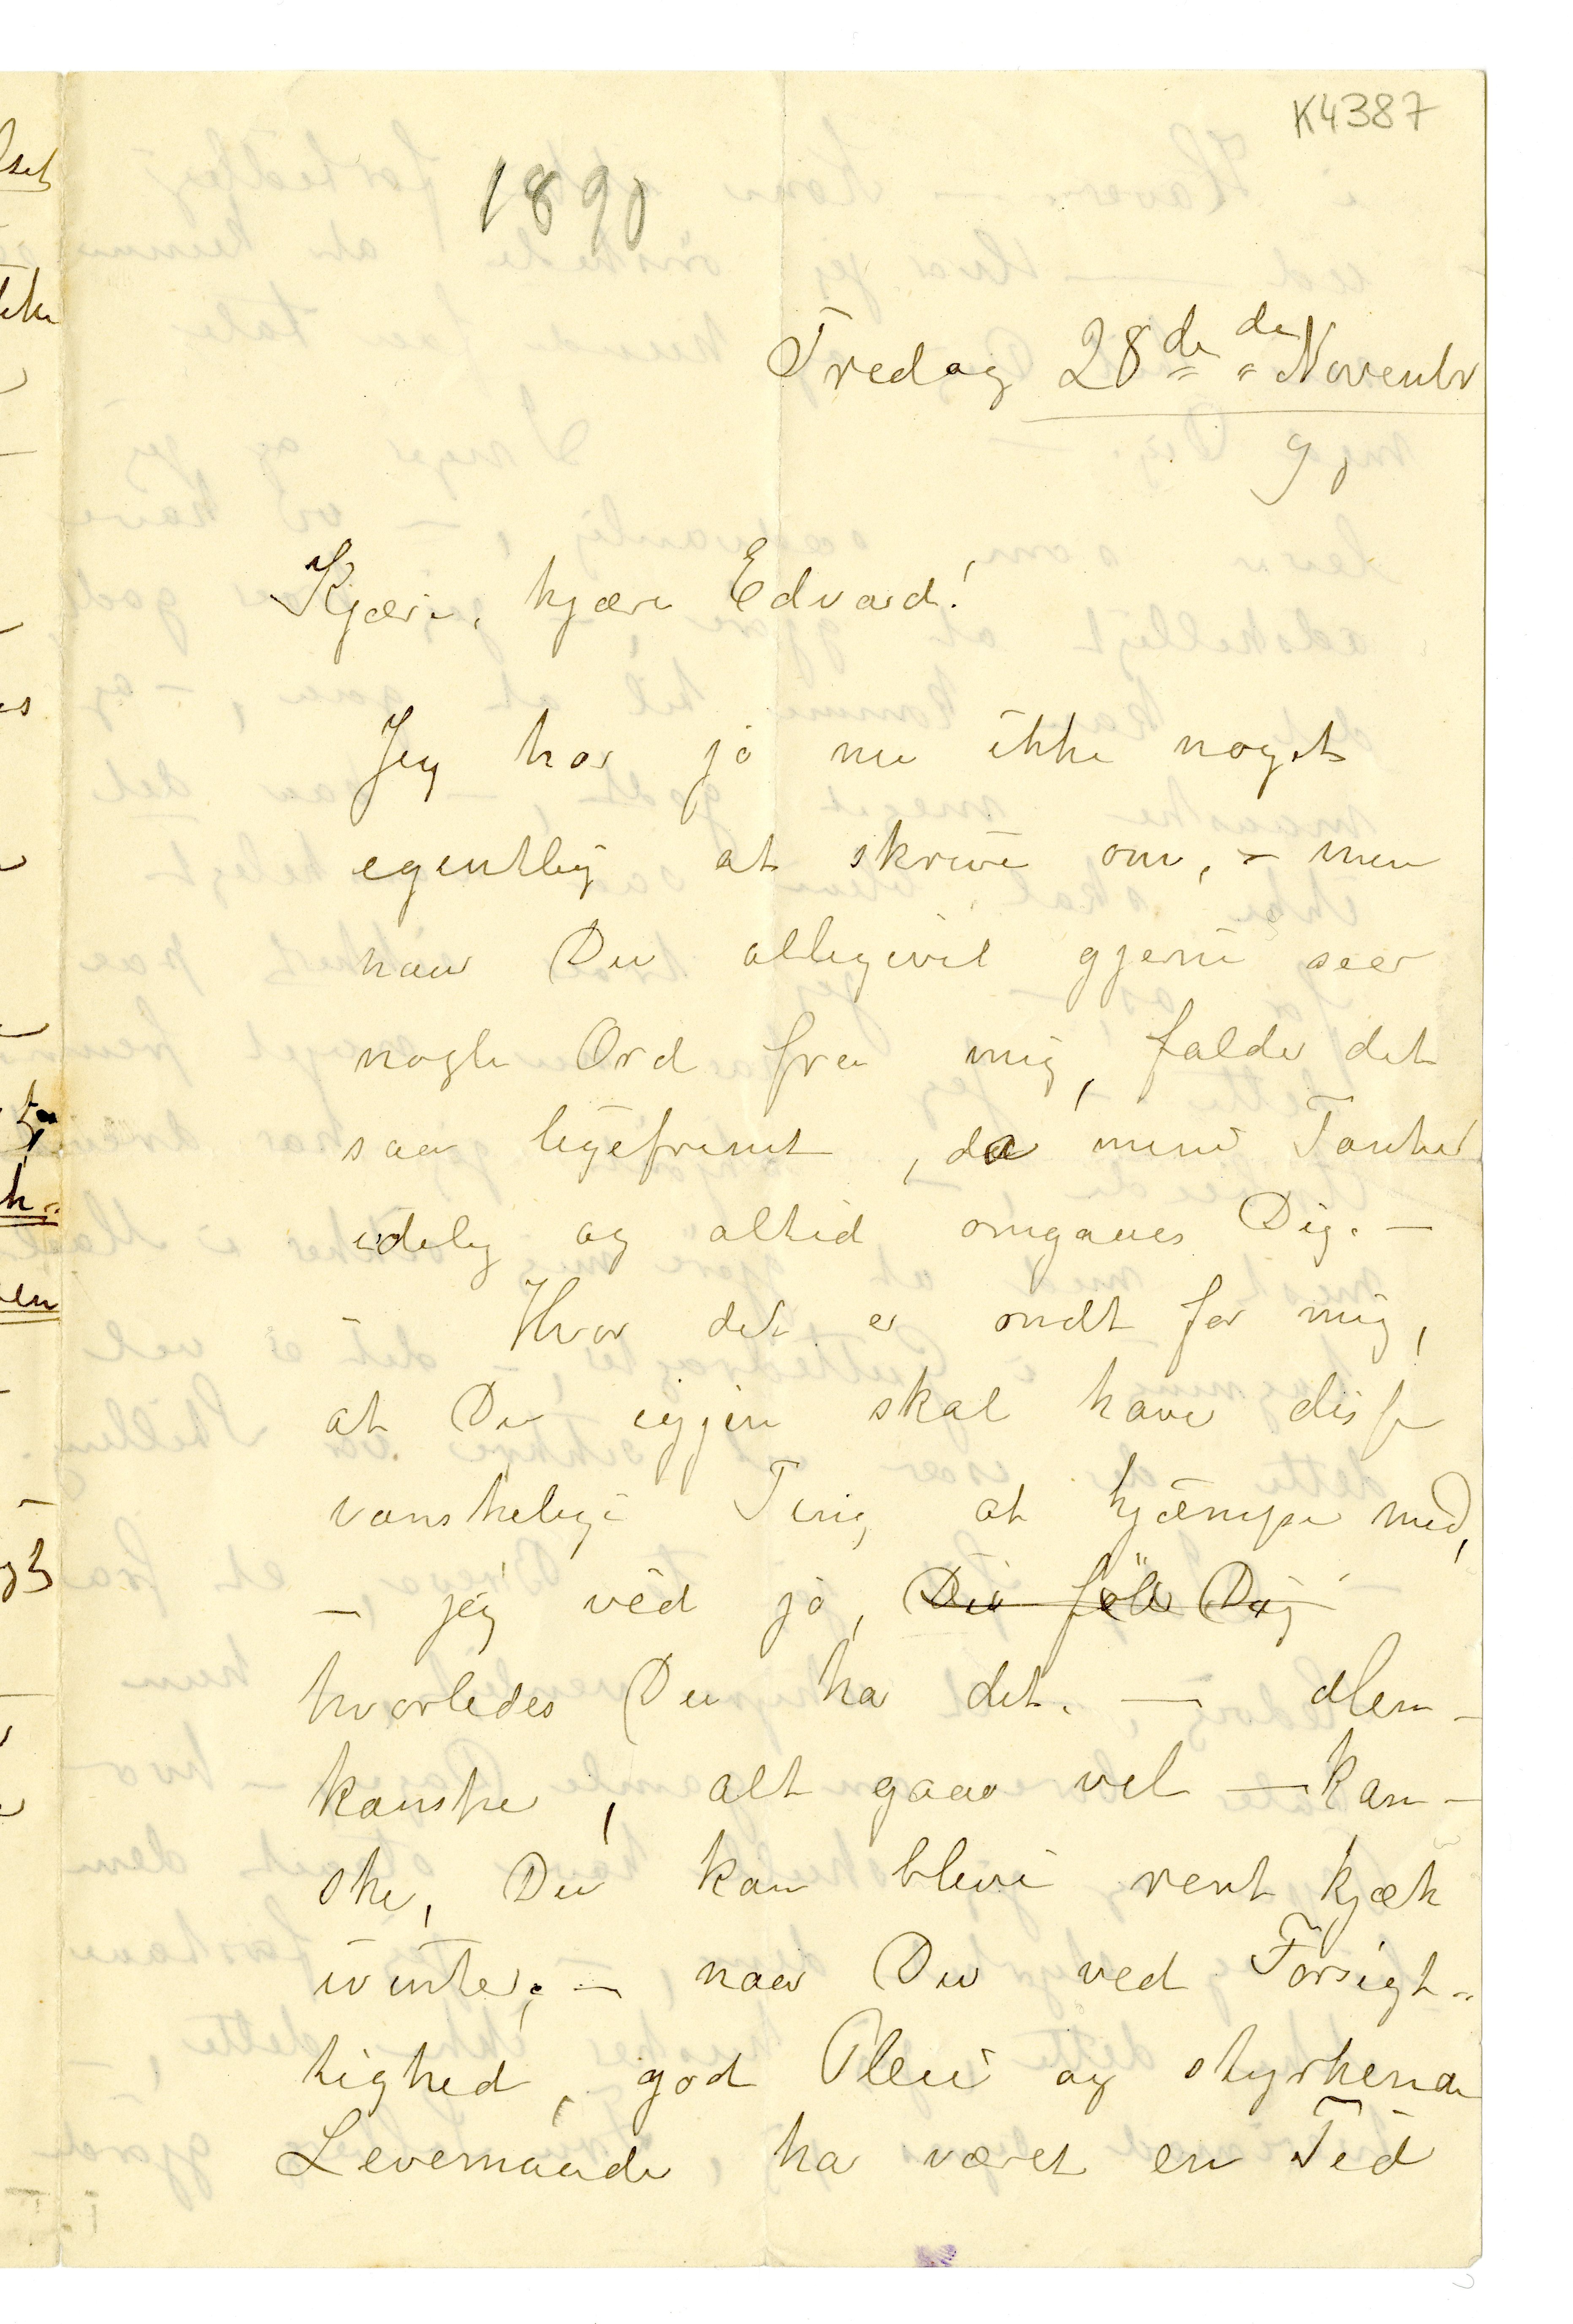 K4387
1890
Fredag 28de de Novembr
90
Kjære, kjære Edvard!
Jeg har jo nu ikke noget
egentlig at skrive om, – men
naar Du alligevel gjerne seer
nogle Ord fra mig, falder det
saa ligefremt, da mine Tanker
idelig og altid omgaaes Dig. –
– Hvor det er ondt for mig,
at Du igjen skal have disse
vanskelige Ting at kjæmpe med,
– jeg véd jo, Du føler Dig
hvorledes Du har det. — Men –
kanske, alt gaaer vel — kan-
ske, Du kan blive rent kjæk
ivinter; – naar Du ved Forsigt-
tighed, god Pleie og styrkende
Levemaade, har været en Tid